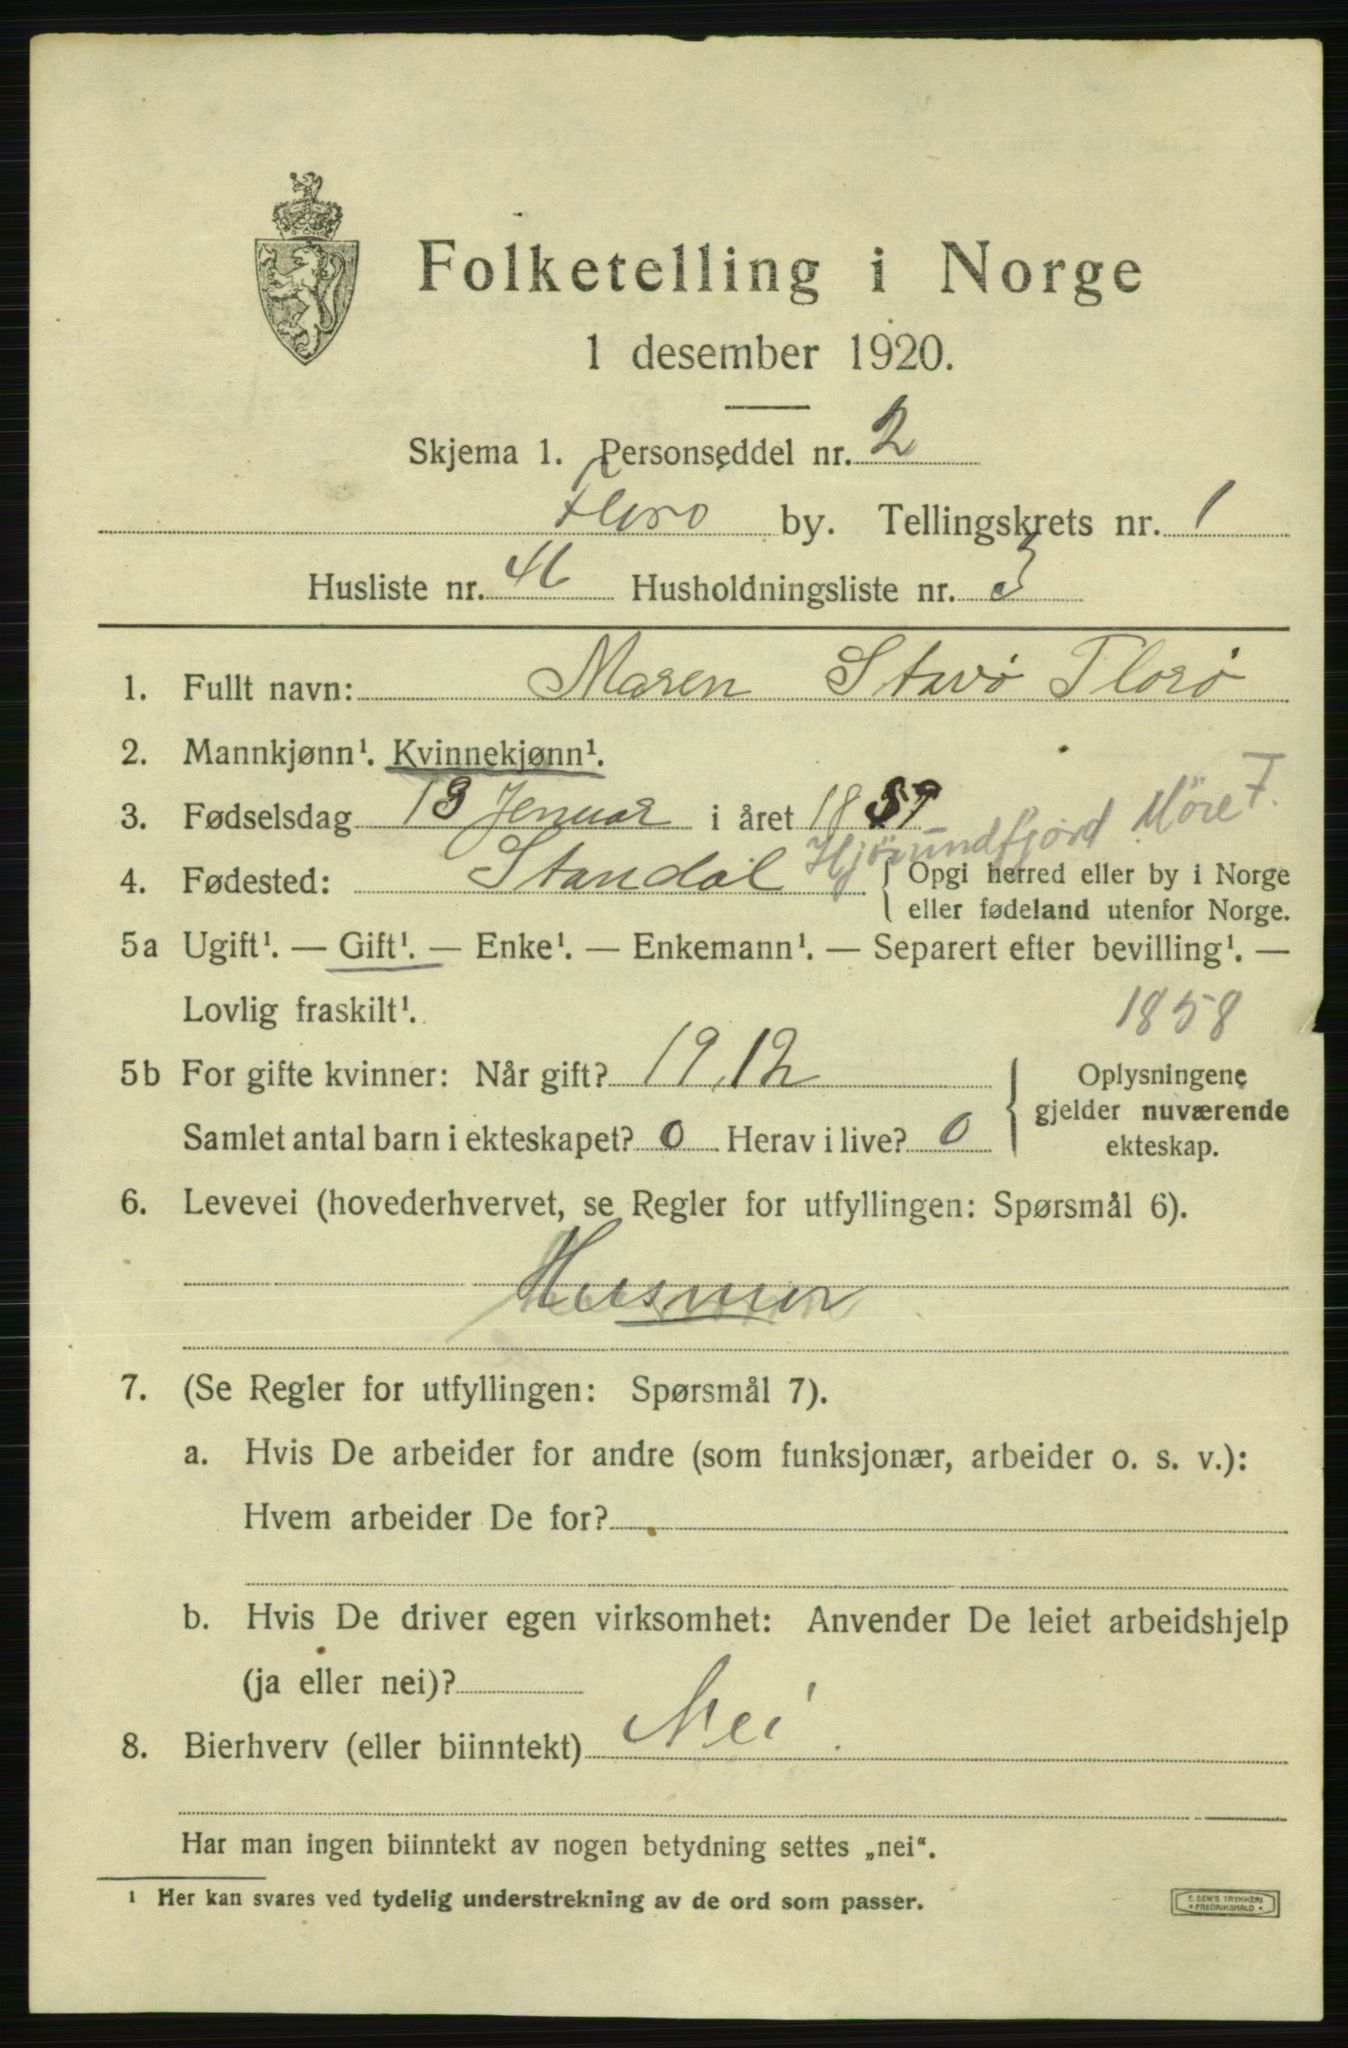 Folketelling i Norge
1 desember 1920.
Skjema 1. Personseddel nr. 2
Florø by. Tellingskrets nr. 1
Husliste nr. Husholdningsliste nr. 3
1. Fullt navn: Maren Stavø Florø
2. Mannkjønn¹. Kvinnekjønn¹.
3. Fødselsdag 13 Jenuar i året 18 Hjørundfjord Møre F.
4. Fødested: Standal { Opgi herred eller by i Norge
eller fødeland utenfor Norge.
5a Ugift¹. — Gift¹. — Enke¹. — Enkemann¹. — Separert efter bevilling¹. —
Lovlig fraskilt¹. 1858
5b For gifte kvinner: Når gift? 1912 { Oplysningene
gjelder nuværende
Samlet antal barn i ekteskapet? 0 Herav i live? 0 ekteskap.
6. Levevei (hovederhvervet, se Regler for utfyllingen: Spørsmål 6).
Husmor
7. (Se Regler for utfyllingen: Spørsmål 7).
a. Hvis De arbeider for andre (som funksjonær, arbeider o. s. v.):
Hvem arbeider De for?
b. Hvis De driver egen virksomhet: Anvender De leiet arbeidshjelp
(ja eller nei)?
8. Bierhverv (eller biinntekt) Nei.
Har man ingen biinntekt av nogen betydning settes „nei“.
¹ Her kan svares ved tydelig understrekning av de ord som passer.
E. SEM'S TRYKKERI
• FREDRIKSHALD •